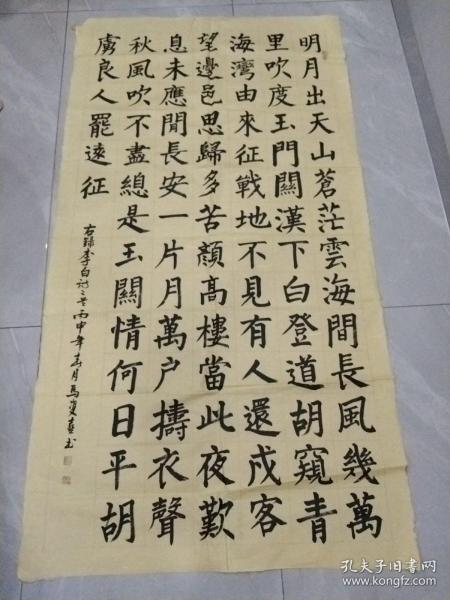 明月出天山蒼茫雲海間長風幾萬
里吹度玉門關漢下白登道胡窺青
海灣由來征戰地不見有人還戍客
望邊邑思歸多苦顏高樓當此夜歎
息未應閒長安一片月萬户擣衣聲
秋風吹不盡總是玉關情何日平胡
虜良人罷遠征
右録李白詩二首丙申年春月馬
孔夫子旧书网
www.kongfz.com